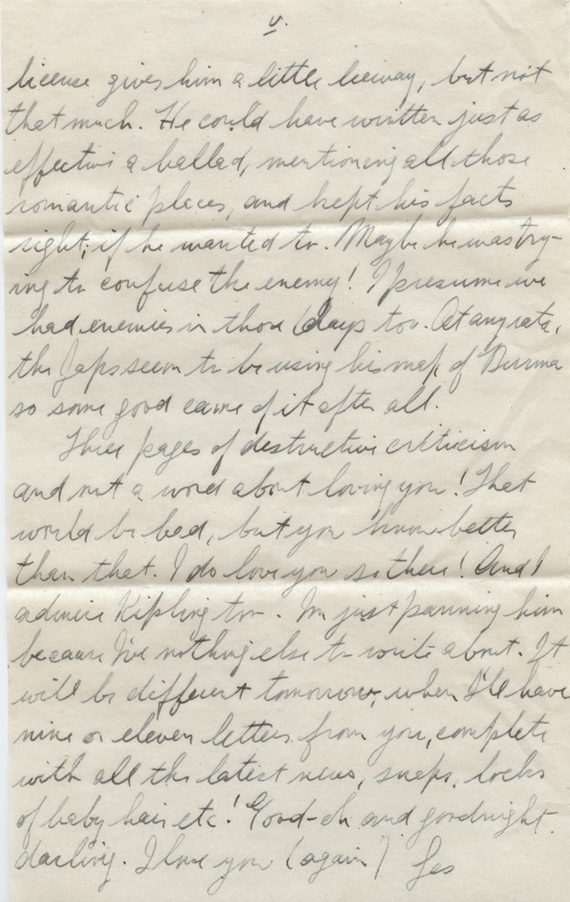 v.
license gives him a little leeway, but not
that much. He could have written just as
effective a ballad, mentioning all those
romantic places, and kept his facts
right; if he wanted to. Maybe he was try-
ing to confuse the enemy! I presume we
had enemies in those days too. At any rate,
the Japs seem to be using his map of Burma
so some good came of it after all.
Three pages of destructive criticism
and not a word about loving you! That
would be bad, but you know better
than that. I do love you so there! And I
admire Kipling too - I'm just panning him
because I've nothing else to write about. It
will be different tomorrow, when I'll have
nine or eleven letters from you, complete
with all the latest news, snaps, locks
of baby hair etc! Good-oh and goodnight
darling. I love you (again) Les